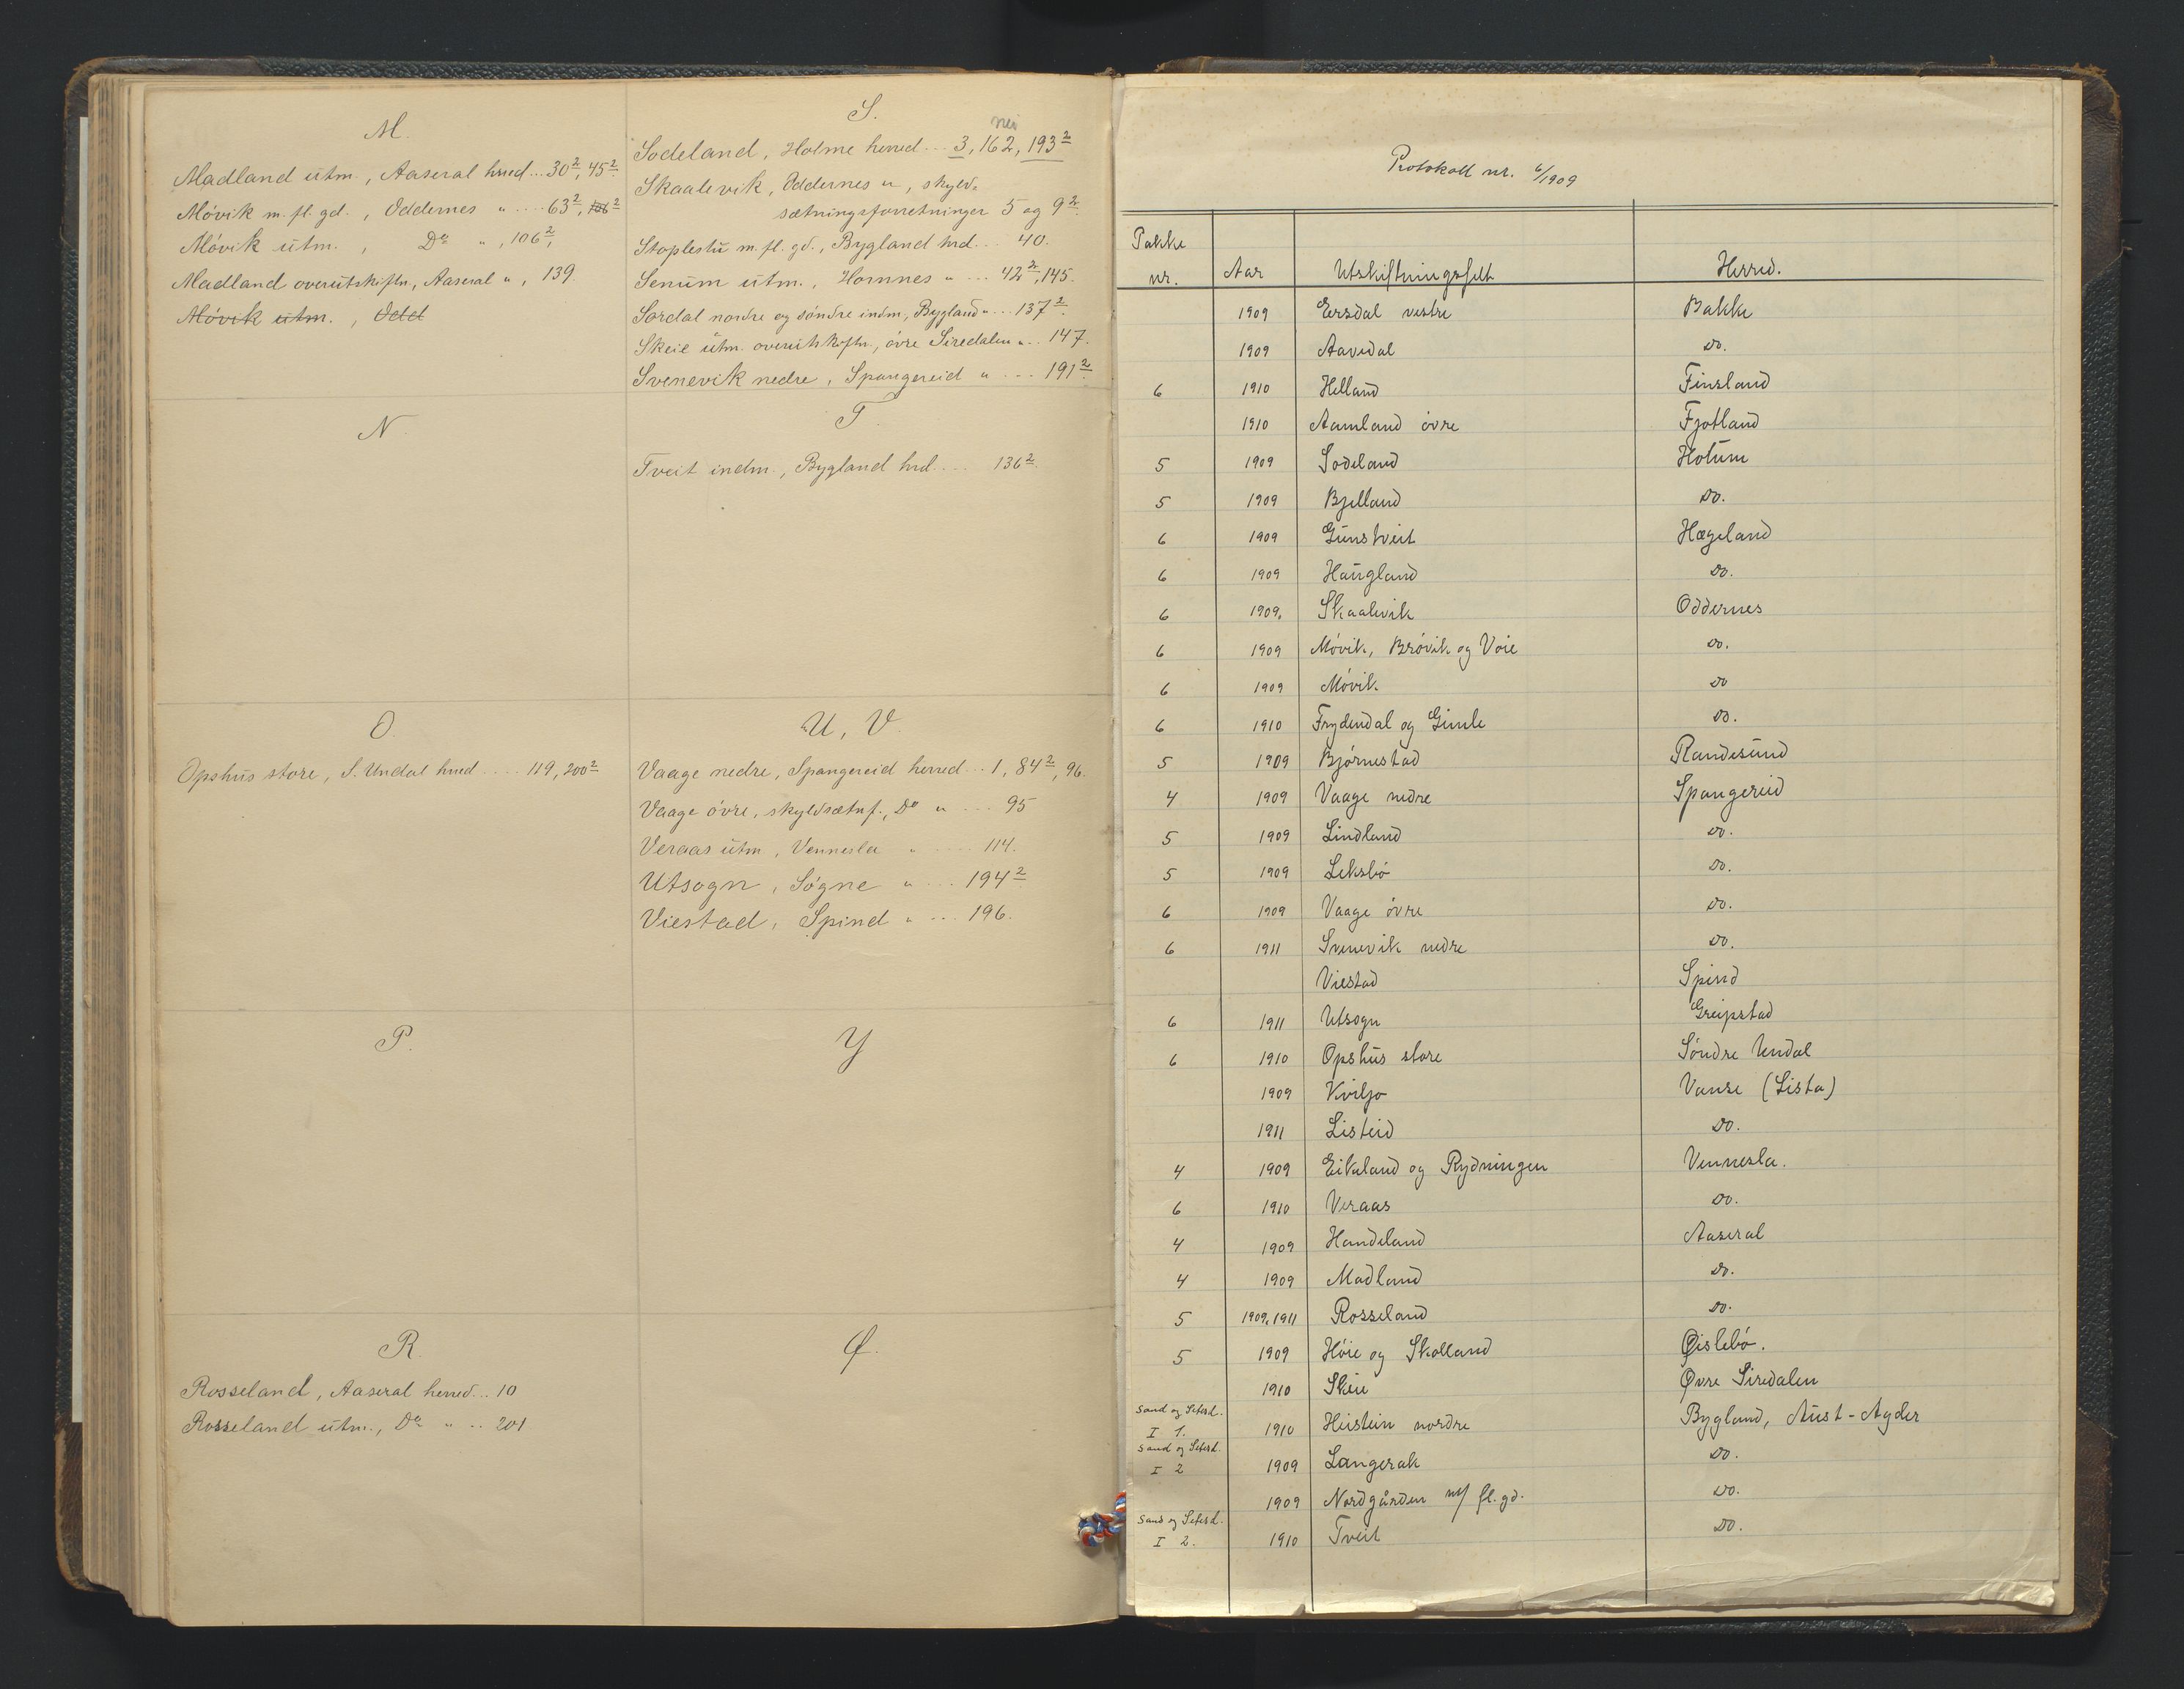 M.
Madland utm., Aaseral herred... 30², 45²
Móvik m. fl. gd., Oddernes " .... 63², 106²
Móvik utm., Do " , 106²,
Madland overutskiftn, Aaseral ", 139
Móvik utm., Odd
N.
O.
Opshus store, S. Undal hrred .... 119, 200²
P.
R.
Rosseland, Aaseral herred... 10
Rosseland utm., Do " .. 201
S.
nei
Sodeland, Holme herred ... 3, 162, 193²
Skaalevik, Oddernes ", skyld=
sætningsforretninger 5 og 9².
Stoplestu m. fl. gd., Bygland hrd... 40.
Senum utm., Hornnes " ... 42², 145.
Sordal nordre og sóndre indm, Bygland " ... 137².
Skeie utm. overutskiftn., óvre Siredalen " .. 147.
Svenevik nedre, Spangereid " ... 191².
T.
Tveit indm., Bygland hrd .... 136².
U, V.
Vaage nedre, Spangereid herred... 1, 84², 96.
Vaage óvre, skyldsætnf., Do " .... 95
Veraas utm, Vennesla " ..... 114.
Utsogn, Sógne " ... 194²
Viestad, Spind " ... 196.
Y
Ø.
Protokoll nr. 6/1909
Pakke nr. Aar Utskiftningsfelt Herred.
1909 Eersdal vestre Bakke
1909 Aavedal do.
6 1910 Helland Finsland
1910 Aamland óvre Fjotland
5 1909 Sodeland Holum
5 1909 Bjelland do.
6 1909 Gunstveit Hægeland
6 1909 Haugland do.
6 1909. Skaalevik Oddernes
6 1909 Móvik, Bróvik og Voie do.
6 1909 Móvik do
6 1910 Frydendal og Gimle do.
5 1909 Bjørnestad Randesund
4 1909 Vaage nedre Spangereid
5 1909 Lindland do.
5 1909 Leksbó do.
6 1909 Vaage óvre do.
6 1911 Svenevik nedre do.
Viestad Spind
6 1911 Utsogn Greipstad
6 1910 Opshus store Sóndre Undal
1909 Kviljo Vanse (Lista)
1911 Listeid do.
4 1909 Eikeland og Rydningen Vennesla.
6 1910 Veraas do.
4 1909 Handeland Aaseral
4 1909 Madland do.
5 1909, 1911 Rosseland do.
5 1909 Hóie og Skolland Øislebó.
1910 Skeie Øvre Siredalen
Sand og Setesd.
I 1. 1910 Heistein nordre Bygland, Aust-Agder
Sand og Setesd.
I 2 1909 Langerak do.
1909 Nordgården m/ fl. gd. do.
Sand og Setesd.
I 2. 1910 Tveit do.